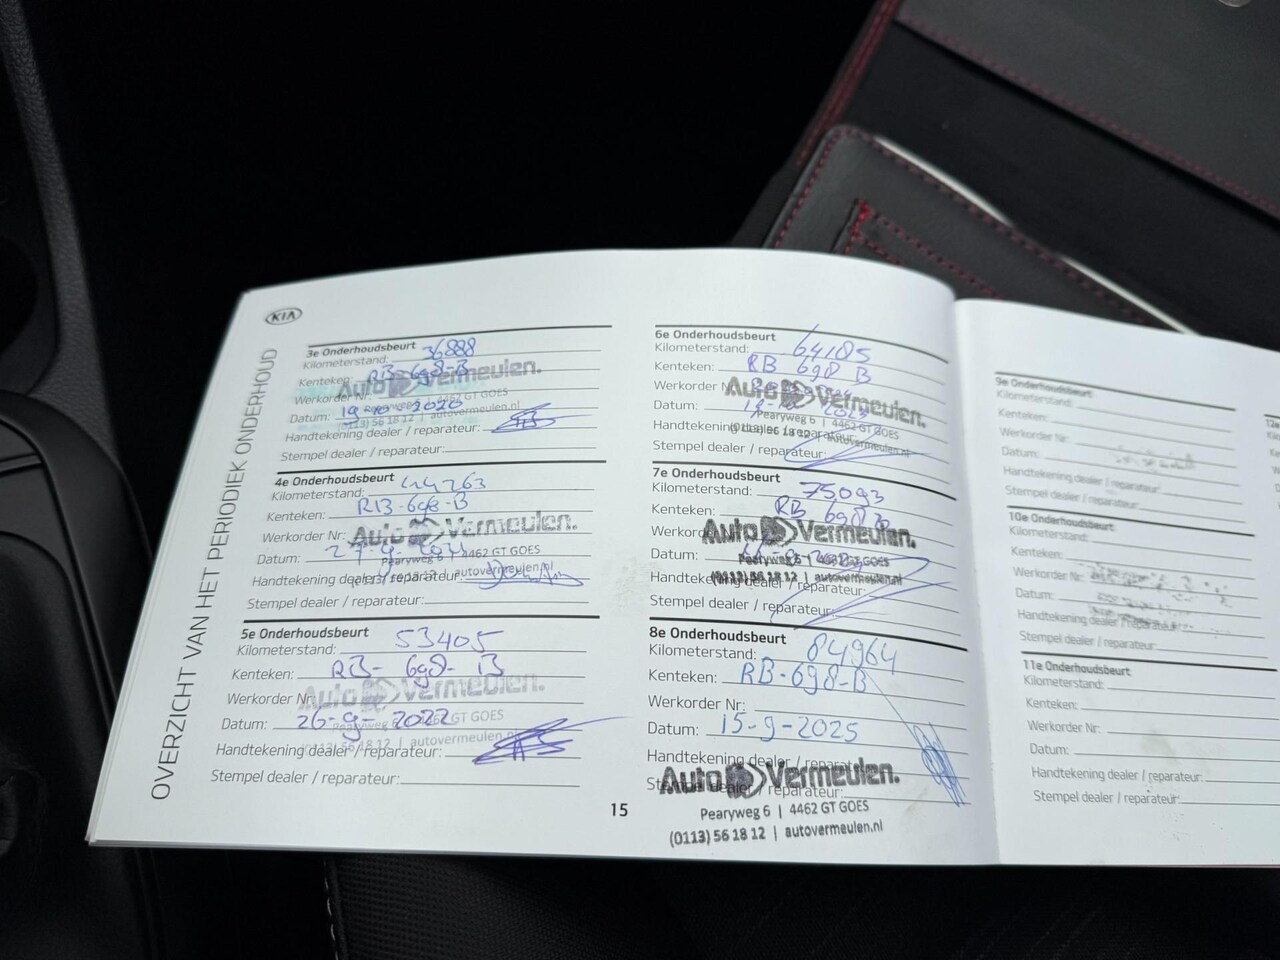 KIA
OVERZICHT VAN HET PERIODIEK ONDERHOUD
3e Onderhoudsbeurt
Kilometerstand: 36888
Kenteken: RB-698-B
Auto Vermeulen.
Werkorder Nr:
Pearyweg 6 | 4462 GT GOES
Datum: 2020
(0113) 56 18 12 | autovermeulen.nl
Handtekening dealer / reparateur:
Stempel dealer / reparateur:
4e Onderhoudsbeurt
Kilometerstand: 44263
Kenteken: RB-698-B
Werkorder Nr:
Auto Vermeulen.
Datum:
Pearyweg 6 | 4462 GT GOES
Handtekening dealer / reparateur:
(0113) 56 18 12 | autovermeulen.nl
Stempel dealer / reparateur:
5e Onderhoudsbeurt
Kilometerstand: 53405
Kenteken: RB-698-B
Werkorder Nr:
Auto Vermeulen.
Datum: 26-9-2022
Pearyweg 6 | 4462 GT GOES
(0113) 56 18 12 | autovermeulen.nl
Handtekening dealer / reparateur:
Stempel dealer / reparateur:
15
6e Onderhoudsbeurt
Kilometerstand: 64185
Kenteken: RB 698 B
Werkorder Nr:
Auto Vermeulen.
Datum:
Pearyweg 6 | 4462 GT GOES
Handtekening dealer / reparateur:
(0113) 56 18 12 | autovermeulen.nl
Stempel dealer / reparateur:
7e Onderhoudsbeurt
Kilometerstand: 75093
Kenteken: RB 698 B
Werkorder
Auto Vermeulen.
Datum:
Pearyweg 6 | 4462 GT GOES
Handtekening dealer / reparateur:
(0113) 56 18 12 | autovermeulen.nl
Stempel dealer / reparateur:
8e Onderhoudsbeurt
Kilometerstand: 84964
Kenteken: RB-698-B
Werkorder Nr:
Datum: 15-9-2025
Handtekening dealer / reparateur:
Stempel dealer / reparateur:
Auto Vermeulen.
Pearyweg 6 | 4462 GT GOES
(0113) 56 18 12 | autovermeulen.nl
9e Onderhoudsbeurt
Kilometerstand:
Kenteken:
Werkorder Nr:
Datum:
Handtekening dealer / reparateur:
Stempel dealer / reparateur:
10e Onderhoudsbeurt
Kilometerstand:
Kenteken:
Werkorder Nr:
Datum:
Handtekening dealer / reparateur:
Stempel dealer / reparateur:
11e Onderhoudsbeurt
Kilometerstand:
Kenteken:
Werkorder Nr:
Datum:
Handtekening dealer / reparateur:
Stempel dealer / reparateur: